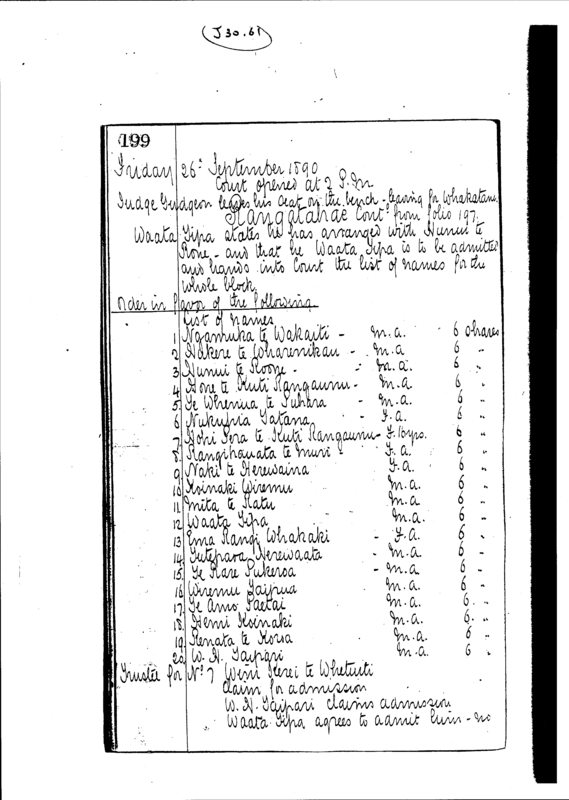 J 30.61
199
Friday 26th September 1890
Court opened at 2 P.M
Judge Gudgeon leaves his seat on the bench - leaving for Whakatane
Rangatahae Cont? from folio 197.
Waata Tipa states he has arranged with Nunui te
Rone - and that he Waata Tipa is to be admitted
and hands into Court the list of names for the
whole block
Order in favor of the following
List of names
1 Ngamuka te Wakaiti - M.a. 6 shares
2 Hakere te Wharenikau - M.a 6 "
3 Nunui te Roone - M.a. 6 "
4 Hone te Kuti Rangaunu - M.a 6 "
5 Te Whenua te Puhara - M.a. 6 "
6 Nukuhia Tatana - F.a. 6 "
7 Hohi Tera te Kuti Rangaunu - F. 16 yrs. 6 "
8 Rangihauata te Muri - F.a. 6 "
9 Naki te Herewaina F.a. 6 "
10 Hoinaki Wiremu M.a. 6 "
11 Mita te Ratu M.a. 6 "
12 Waata Tipa M.a. 6 "
13 Ema Rangi Whakaki - F.a. 6 "
14 Tutepara Nerewaata - M.a. 6 "
15 Te Rare Pukeroa - M.a. 6 "
16 Wiremu Taipua M.a. 6 "
17 Te Amo Paetai M.a. 6 "
18 Hemi Hoinaki M.a. 6 "
19 Renata te Korea M.a. 6 "
20 W. H. Taipari M.a. 6 "
Trustee for No 7 Wini Kerei te Whetuiti
Claim for admission
W. H. Taipari claims admission
Waata Tipa agrees to admit him - no